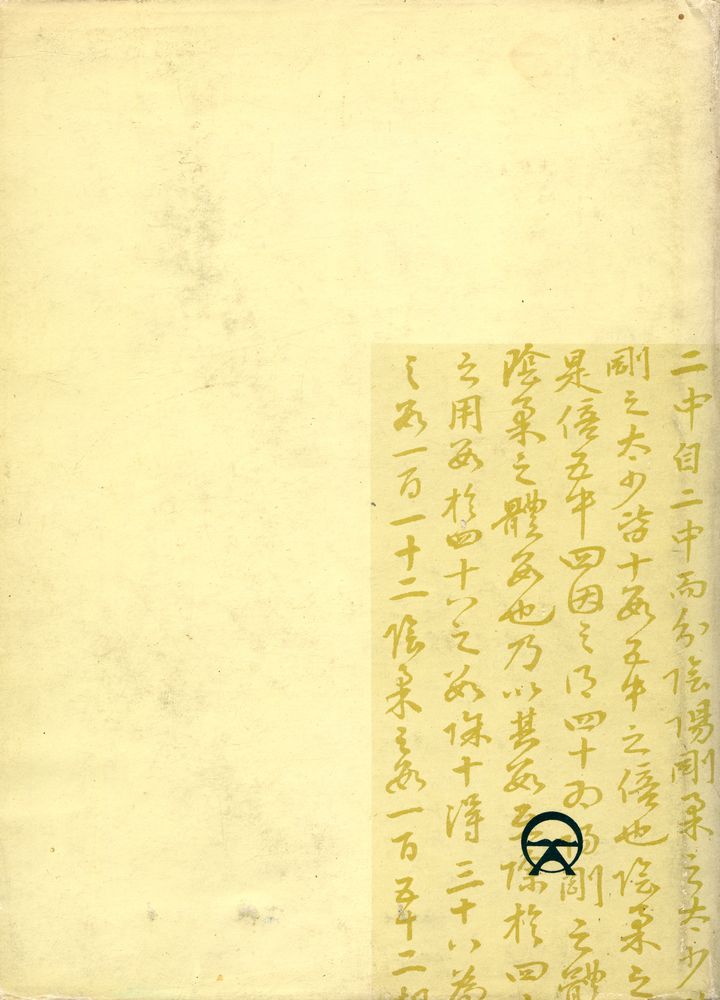 二中自二中而分陰陽剛柔之太少
剛之太少皆十數五中之倍也陰柔之
是倍五中四因之得四十為陽剛之體
陰柔之體數也乃以其數互除於四
之用數於四十八之數除十得三十八為
之數一百一十二陰柔之數一百五十二